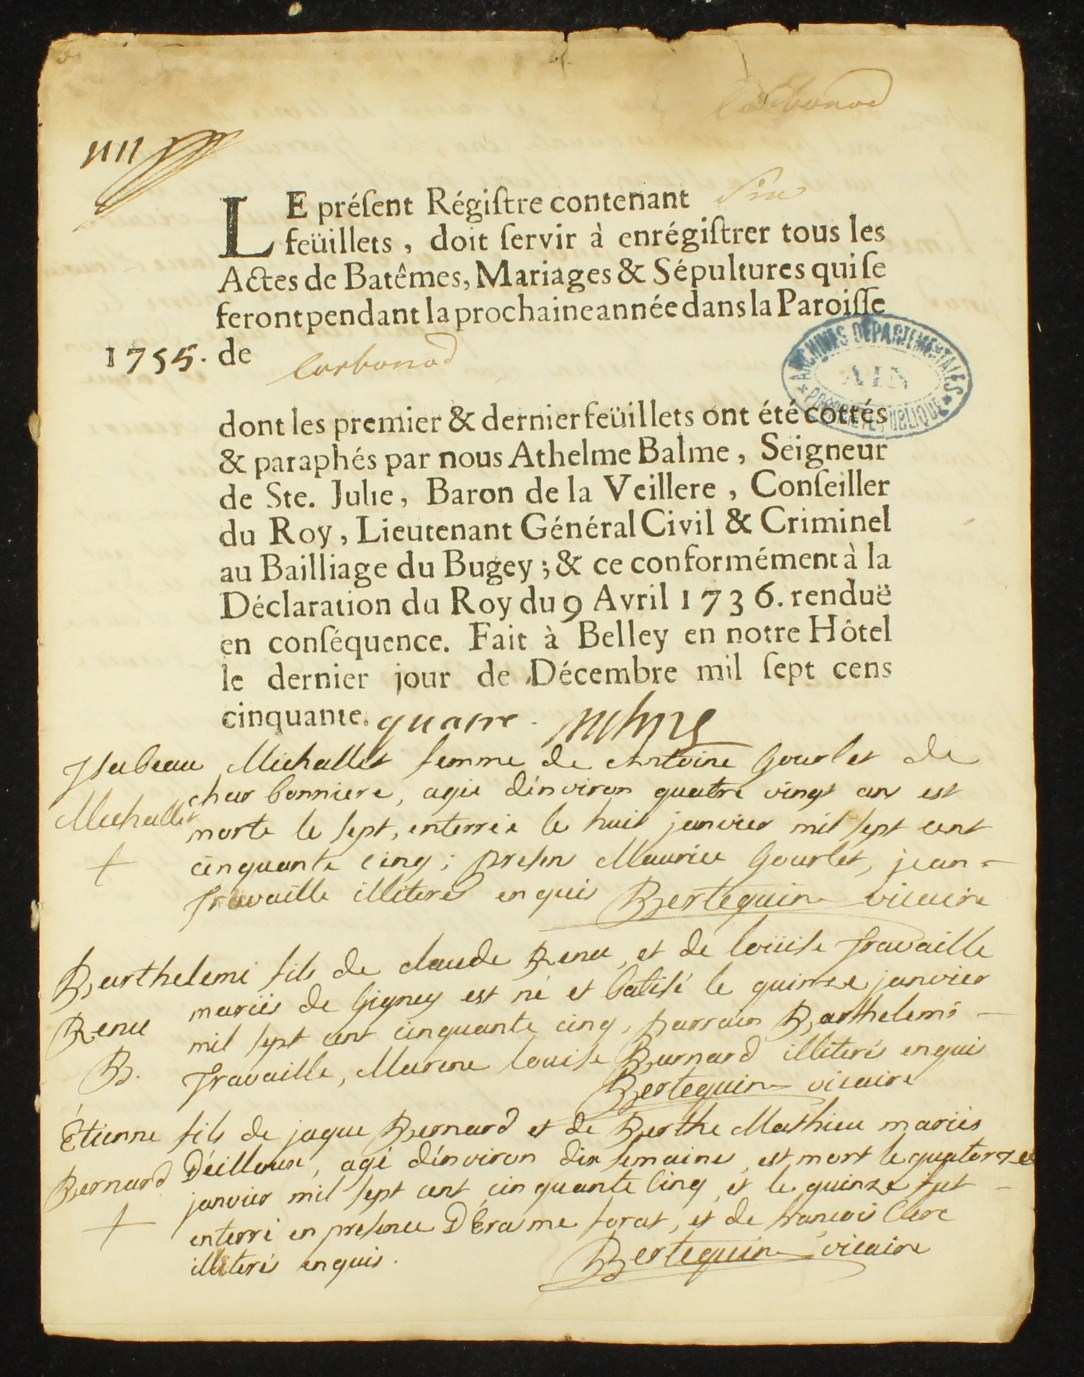 Corbonod
LE préſent Régiſtre contenant Six
feüillets, doit ſervir à enrégiſtrer tous les
Actes de Batêmes, Mariages & Sépultures qui ſe
feront pendant la prochaine année dans la Paroiſſe
1755. de Corbonod
ARCHIVES DÉPARTEMENTALES
AIN
PROPRIÉTÉ PUBLIQUE
dont les premier & dernier feüillets ont été cottés
& paraphés par nous Athelme Balme, Seigneur
de Ste. Julie, Baron de la Veillere, Conſeiller
du Roy, Lieutenant Général Civil & Criminel
au Bailliage du Bugey; & ce conformément à la
Déclaration du Roy du 9 Avril 1736. renduë
en conſéquence. Fait à Belley en notre Hôtel
le dernier jour de Décembre mil ſept cens
cinquante. quatre.
Isabeau Michallet femme de Antoine Gourlet de
Michallet charbonniere, agée d'environ quatre vingt ans est
morte le sept, enterrée le huit janvier mil sept cent
+ cinquante cinq; presens Maurice Gourlet, jean
Travaille illiterés enquis Bertequin vicaire
Barthelemi fils de claude Rene, et de loüise Travaille
Rene mariés de Gigney est né et batisé le quinze janvier
mil sept cent cinquante cinq, parrain Barthelemi
B. Travaille, Marene louise Burnard illiterés enquis
Bertequin vicaire
Étienne fils de jaque Bernard et de Berthe Mathieu mariés
Bernard D'eilloux, agé d'environ dix semaines, est mort le quatorze
janvier mil sept cent cinquante cinq, et le quinze fut
+ enterré en presence D'Erasme forat, et de francois Clerc
illiterés enquis. Bertequin vicaire